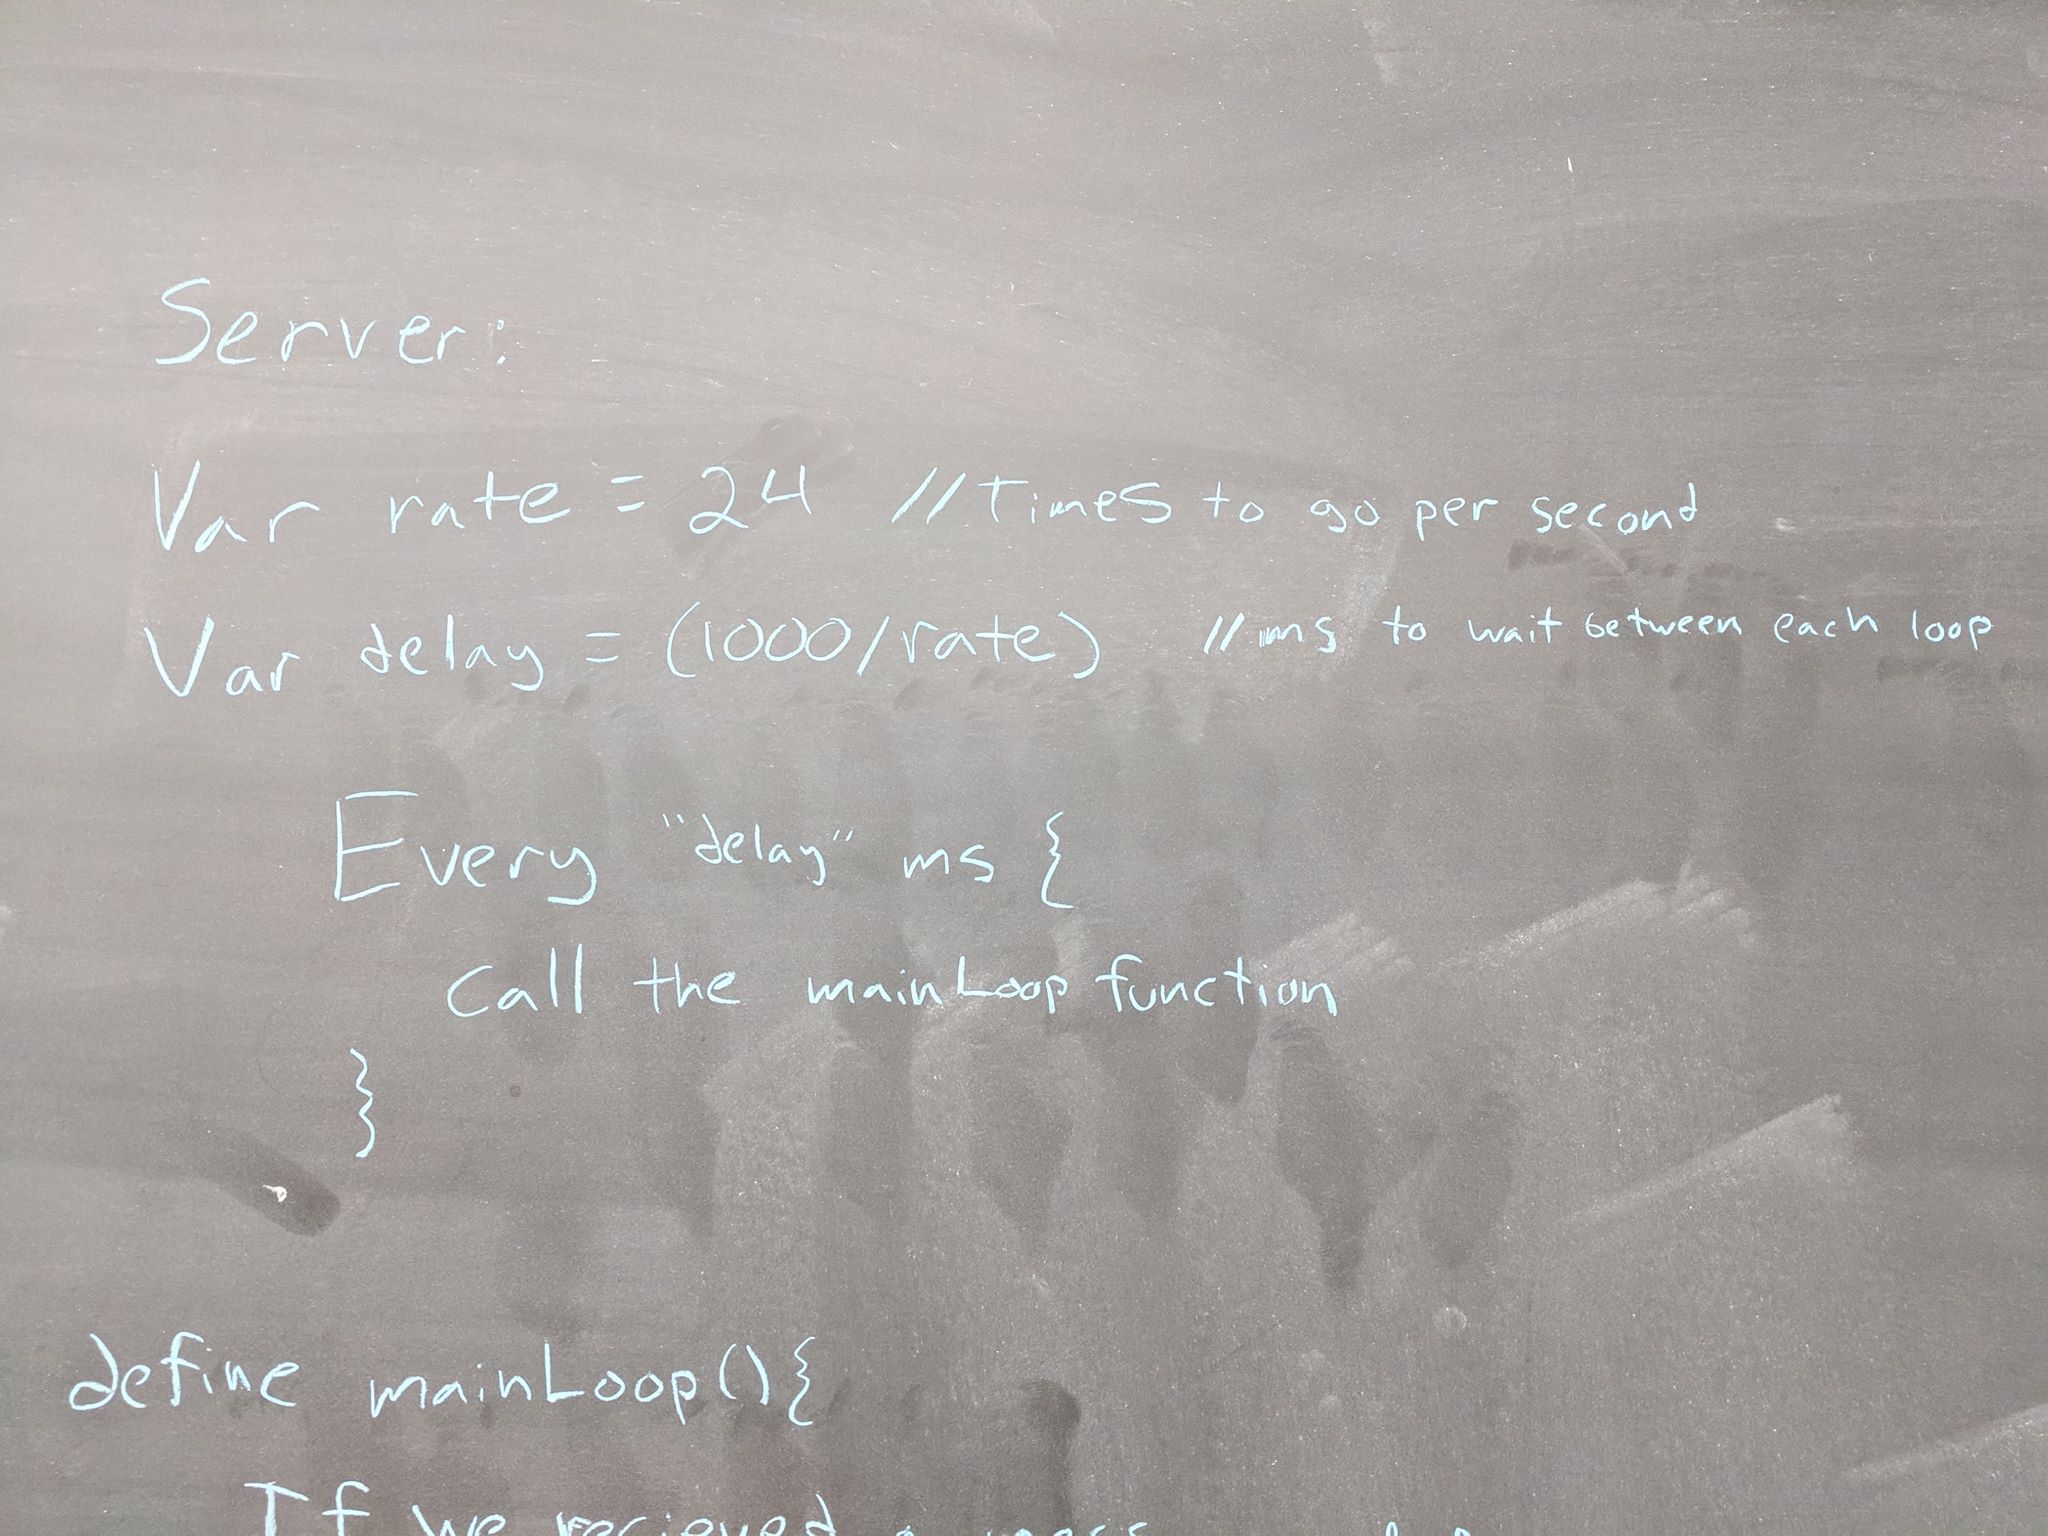 Server:
Var rate = 24 //Times to go per second
Var delay = (1000/rate) //ms to wait between each loop
Every "delay" ms {
call the mainLoop function
}
define mainLoop(){
If we recieved a